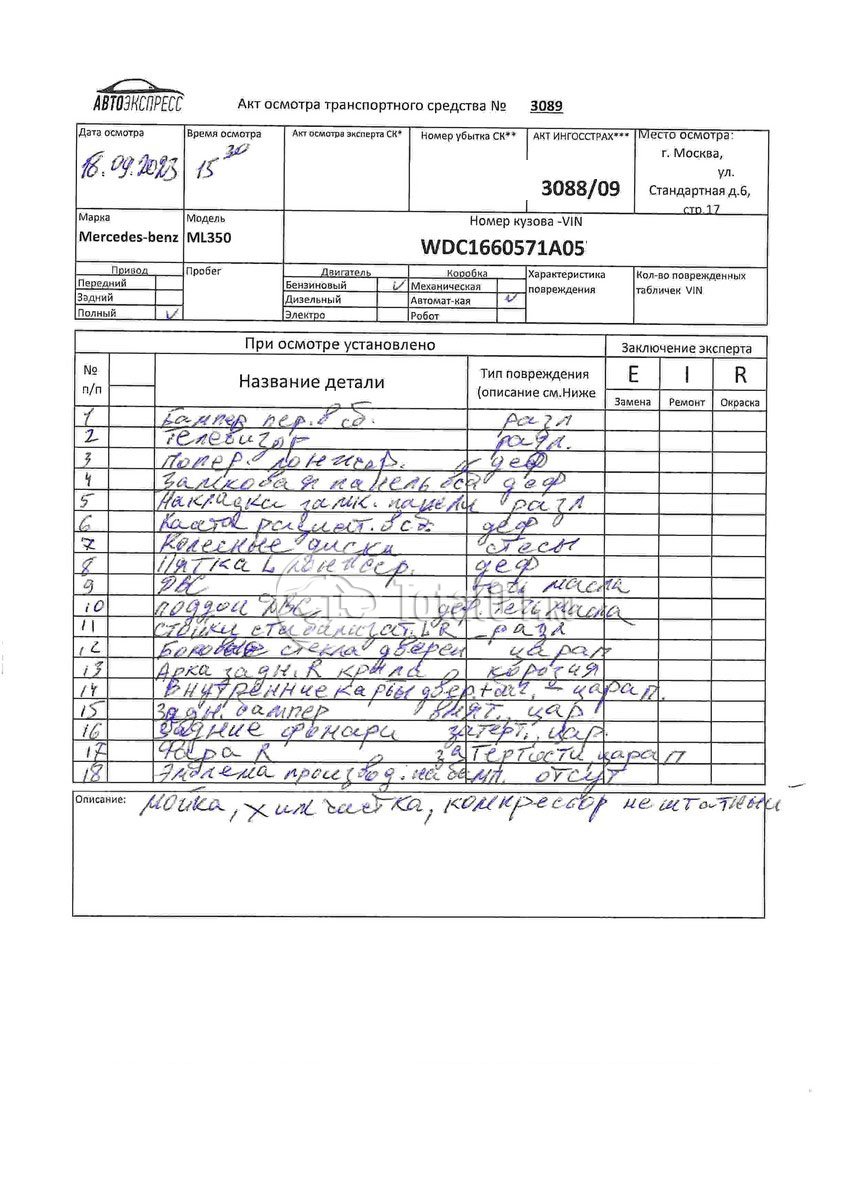 АВТОЭКСПРЕСС
Акт осмотра транспортного средства № 3089
Дата осмотра Время осмотра Акт осмотра эксперта СК* Номер убытка СК** АКТ ИНГОССТРАХ*** Место осмотра:
18.09.2023 15 30 3088/09 г. Москва,
ул.
Стандартная д.6,
стр.17
Марка Модель Номер кузова -VIN
Mercedes-benz ML350 WDC1660571A05
Привод Пробег Двигатель Коробка Характеристика повреждения Кол-во поврежденных табличек VIN
Передний Бензиновый V Механическая
Задний Дизельный Автомат-кая V
Полный V Электро Робот
При осмотре установлено Заключение эксперта
№ п/п Название детали Тип повреждения (описание см.Ниже E I R
Замена Ремонт Окраска
1 Бампер пер. в сб. разл
2 Телевизор разл.
3 Попер. лонжер. деф
4 Замковая панель деф
5 Накладка замк. панели разл
6 деф
7 Колесные диски стесы
8 L лонжер. деф
9 ДВС течь масла
10 поддон ДВС деф течь масла
11 стойки стабилизат. LR разл
12 Боковые стекла дверей царап
13 Арка задн. R крыла корозия
14 Внутренние карты двер. - царап.
15 Задн. бампер вмят., цар
16 Задние фонари затерт., цар.
17 Фара R затертости, царап
18 Эмблема производ. на бамп. отсут
Описание: мойка, химчистка, компрессор не штатный